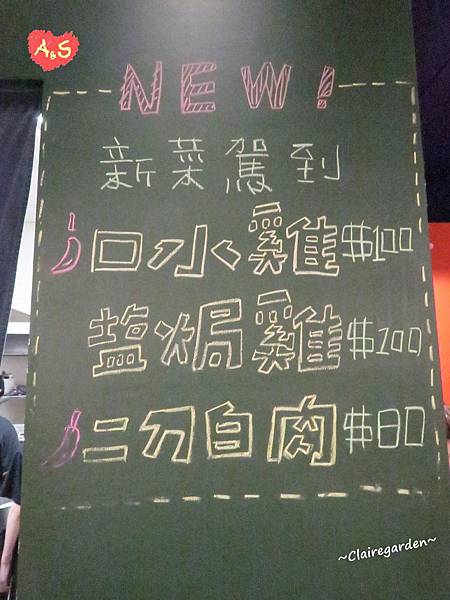 A&S
NEW!
新菜駕到
口水雞$100
塩焗雞$100
二刀白肉$80
~Clairegarden~